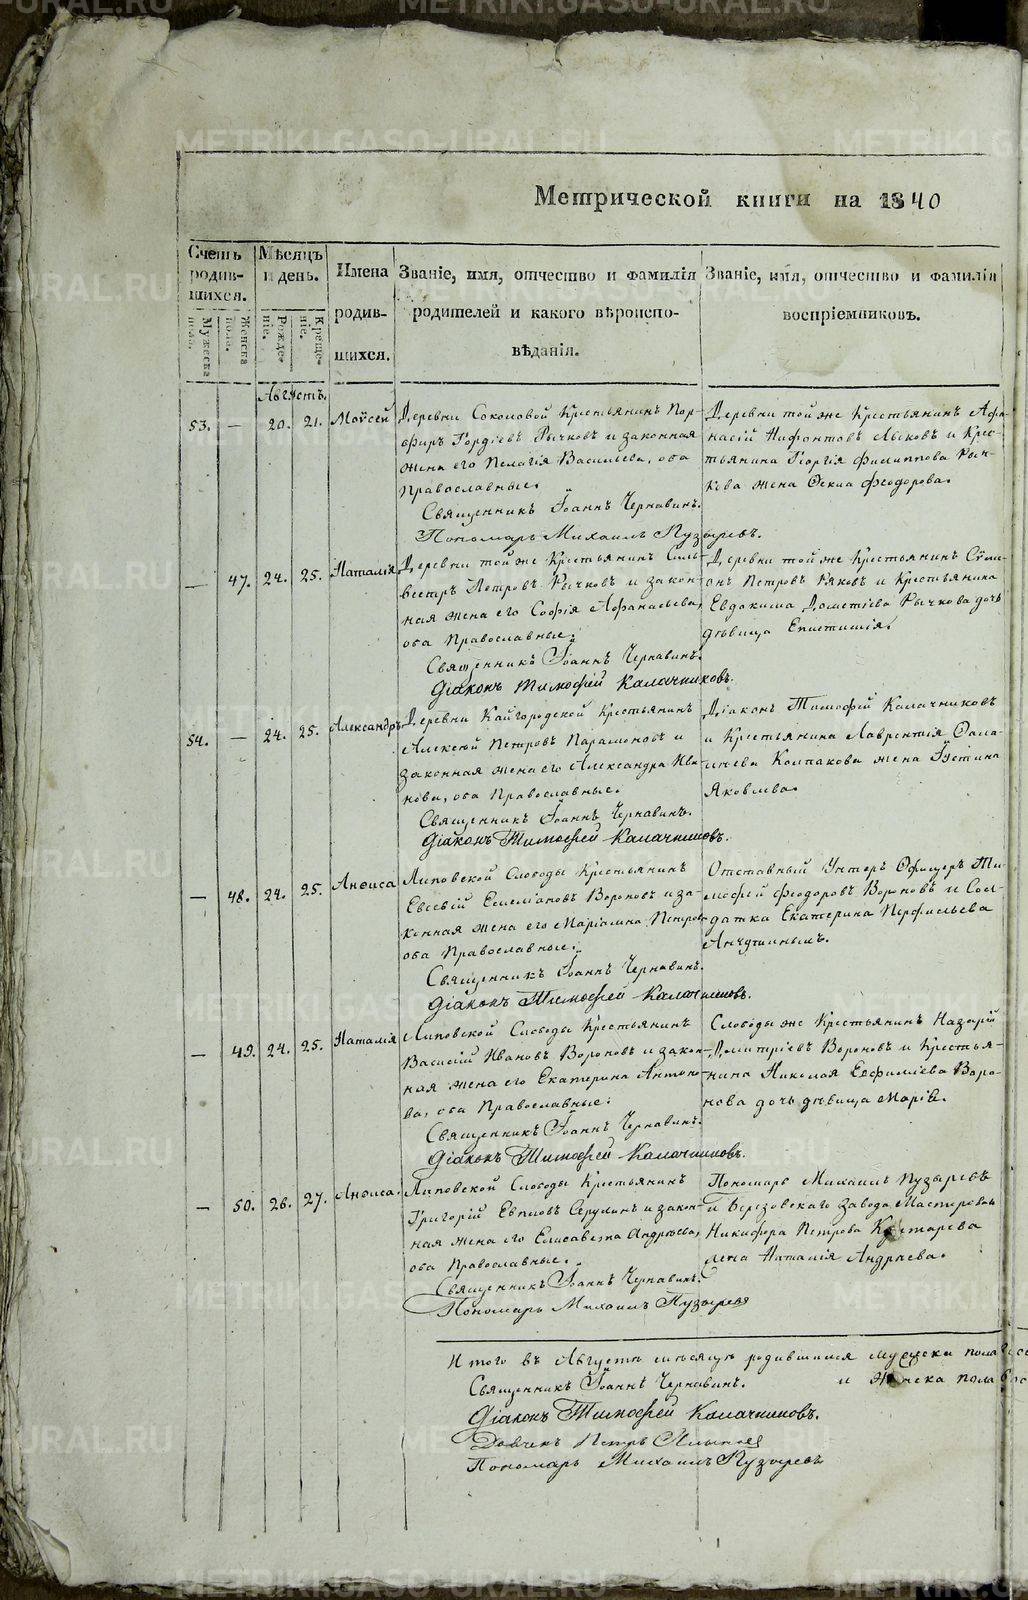 Метрической книги на 1840
Счетъ родив-шихся.
Мужеска пола.
Женска пола.
Мѣсяцъ и день.
Рожде-ніе.
Креще-ніе.
Имена родив-шихся.
Званіе, имя, отчество и фамилія
родителей и какого вѣроиспо-
вѣданія.
Званіе, имя, отчество и фамилія
воспріемниковъ.
Августъ.
53. — 20. 21. Моѵсей
Деревни Соколовой Крестьянинъ Пор-
фиръ Гордіевъ Рычковъ и законная
жена его Пелагія Васильева, оба
Православные.
Священникъ Іоаннъ Чернавинъ.
Пономарь Михаилъ Пузыревъ.
Деревни той же Крестьянинъ Афа-
насій Нифонтовъ и Крес-
тьянина Георгія Филиппова Рыч-
кова жена Феодорова.
— 47. 24. 25. Наталія
Деревни той же Крестьянинъ Силь-
вестръ Петровъ Рычковъ и закон-
ная жена его Софія Афанасьева,
оба Православные.
Священникъ Іоаннъ Чернавинъ.
Діаконъ Тимофей Калачниковъ.
Деревни той же Крестьянинъ Сѵме-
онъ Петровъ и Крестьянина
Евдокима Дометіева Рычкова дочь
дѣвица Епистимія.
54. — 24. 25. Александръ
Деревни Кайгородской Крестьянинъ
Алексѣй Петровъ Парамоновъ и
законная жена его Александра Ива-
нова, оба Православные.
Священникъ Іоаннъ Чернавинъ.
Діаконъ Тимофей Калачниковъ.
Діаконъ Тимофей Калачниковъ
и Крестьянина Лаврентія
Колпакова жена Іустина
Яковлева.
— 48. 24. 25. Анфиса
Липовской Слободы Крестьянинъ
Евсевій Емеліановъ Вороновъ и за-
конная жена его Маріамна Петрова
оба Православные.
Священникъ Іоаннъ Чернавинъ.
Діаконъ Тимофей Калачниковъ.
Отставный Унтеръ Офицеръ Ти-
мофей Феодоровъ Вороновъ и Сол-
датка Екатерина Перфильева
— 49. 24. 25. Наталія
Липовской Слободы Крестьянинъ
Василій Ивановъ Вороновъ и закон-
ная жена его Екатерина Антоно-
ва, оба Православные.
Священникъ Іоаннъ Чернавинъ.
Діаконъ Тимофей Калачниковъ.
Слободы же Крестьянинъ Назарій
Димитріевъ Вороновъ и Крестья-
нина Николая Евфиміева Воро-
нова дочь дѣвица Марія.
— 50. 26. 27. Анфиса.
Липовской Слободы Крестьянинъ
Григорій и закон-
ная жена его Елисавета Андреева,
оба Православные.
Священникъ Іоаннъ Чернавинъ.
Пономарь Михаилъ Пузыревъ
Пономарь Михаилъ Пузыревъ
и Березовскаго Завода Мастероваго
Никифора Петрова
жена Наталія Андреева.
Итого въ Августѣ мѣсяцѣ родившихся мужеска пола
и Женска пола
Священникъ Іоаннъ Чернавинъ.
Діаконъ Тимофей Калачниковъ.
Дьячекъ Петръ
Пономарь Михаилъ Пузыревъ
METRIKI.GASO-URAL.RU